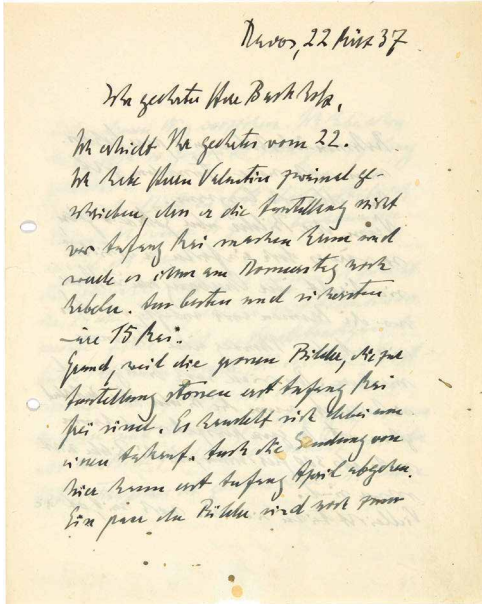 Davos, 22 März 37
Sehr geehrter Herr Buchholz,
Ich erhielt Ihr geehrtes vom 22.
Ich habe Herrn Valentin zweimal ge-
schrieben, dass er die Ausstellung nicht
vor Anfang Mai machen kann und
werde es ihm am Donnerstag noch
kabeln. Am besten und sichersten
wäre 15 Mai.
Grund, weil die grossen Bilder, die zur
Ausstellung erst Anfang Mai
frei sind. Es handelt sich dabei um
einen Ankauf. Auch die Sendung von
hier kann erst Anfang April abgehen.
Ein paar der Bilder sind noch zum